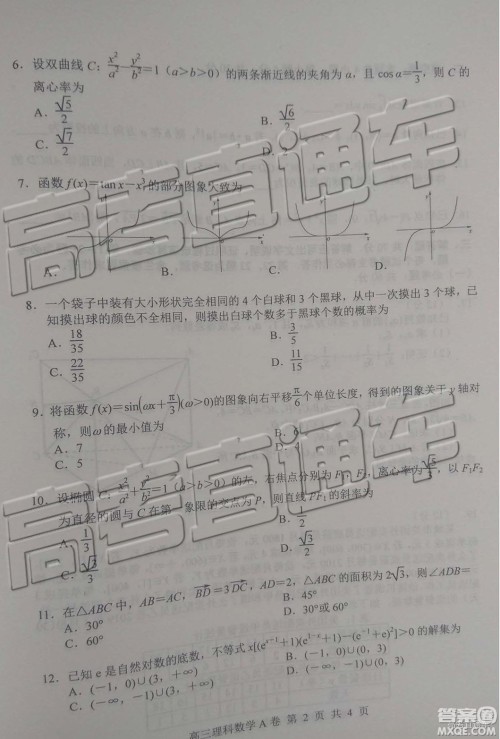 6. 设双曲线 C: x²/a² − y²/b² = 1 (a>b>0) 的两条渐近线的夹角为 α，且 cos α = 1/3，则 C 的
离心率为
A. √5/2 B. √6/2
C. √7/2 D.
7. 函数 f(x)=tan x−x³ 的部分图象大致为
A. B. C. D.
8. 一个袋子中装有大小形状完全相同的 4 个白球和 3 个黑球，从中一次摸出 3 个球，已
知摸出球的颜色不全相同，则摸出白球个数多于黑球个数的概率为
A. 18/35 B. 3/5
C. 22/35 D. 11/15
9. 将函数 f(x)=sin(ωx+π/3)(ω>0)的图象向右平移 π/6 个单位长度，得到的图象关于 y 轴对
称，则 ω 的最小值为
A. 7 B. 6
C. 5 D.
10. 设椭圆 C: x²/a² + y²/b² = 1 (a>b>0) 的左、右焦点分别为 F₁、F₂，离心率为 √5/3，以 F₁F₂
为直径的圆与 C 在第一象限的交点为 P，则直线 PF₁ 的斜率为
A. 1/3 B. 1/2
C. √3/3 D. √3/2
11. 在△ABC 中，AB=AC，BD=3DC，AD=2，△ABC 的面积为 2√3，则∠ADB=
A. 30° B. 45°
C. 60° D. 30°或 60°
12. 已知 e 是自然对数的底数，不等式 x[(eˣ⁻¹+1)(e¹⁻ˣ+1)−(e⁻¹+e)²]>0 的解集为
A. (−1, 0)∪(3, +∞) B. (−1, 0)∪(0, 3)
C. (−∞, −1)∪(3, +∞) D. (−∞, −1)∪(0, 3)
高三理科数学 A 卷 第 2 页 共 4 页
高考直通车
高考直通车
答案圈
MXQE.COM